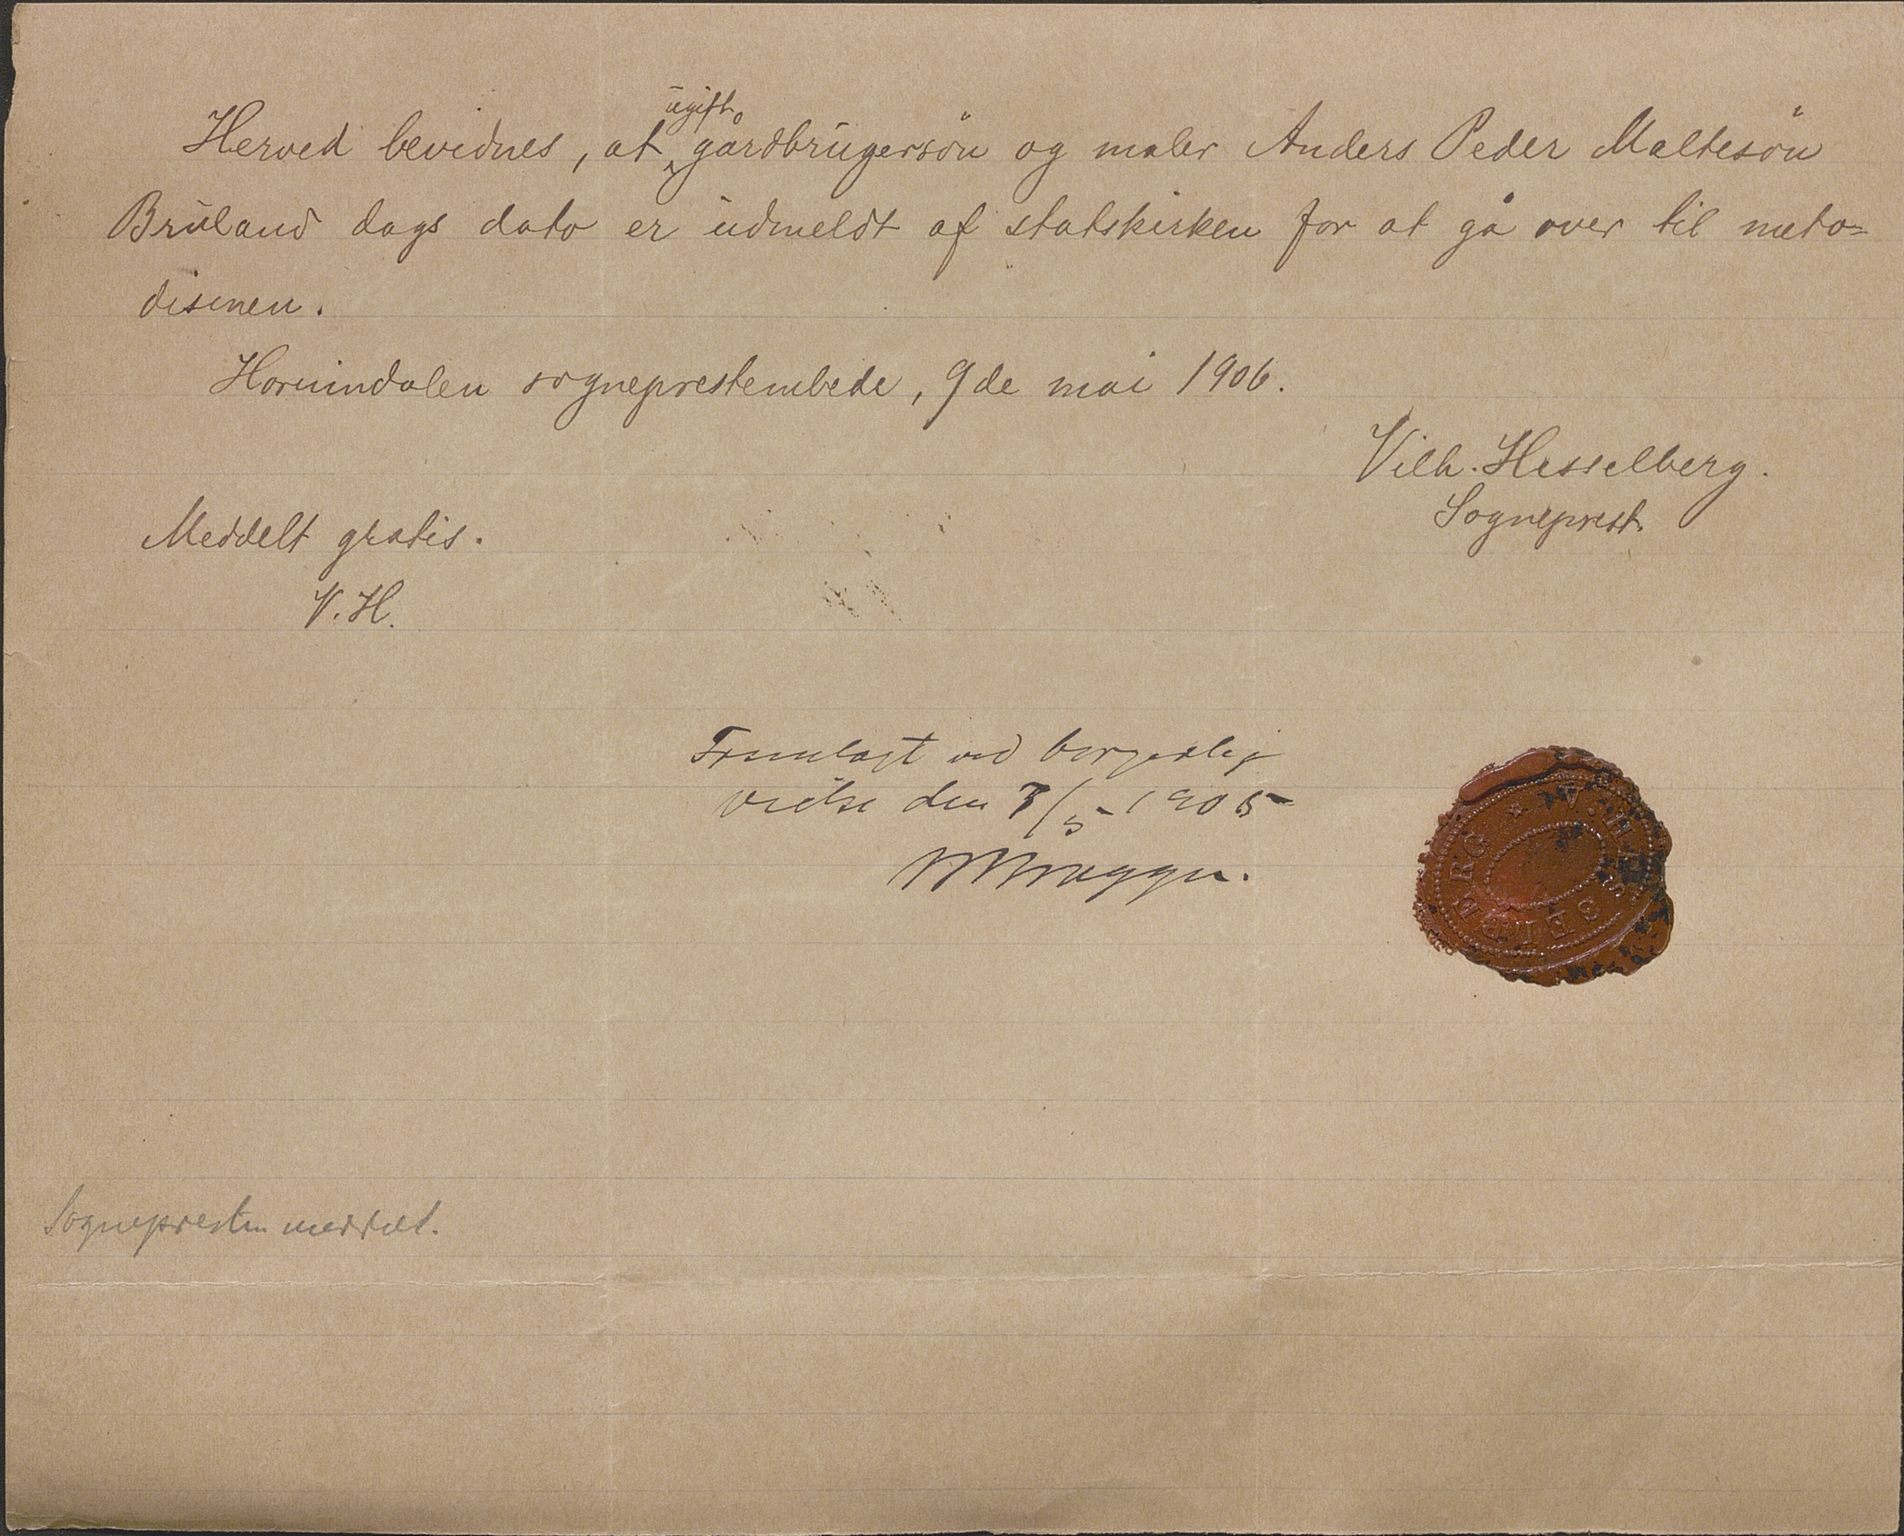 Herved bevidnes, at ugift gårdbrugersön og maler Anders Peder Maltesön
Bruland dags dato er udmeldt af statskirken for at gå over til meto=
dismen.
Hornindalen sogneprestembede, 9de mai 1906.
Vilh. Hesselberg.
Sogneprest.
Meddelt gratis.
V. H.
Fremlagt ved borgerlig
vielse den /5 - 190
V. HESSELBERG
Sognepresten meddelt.